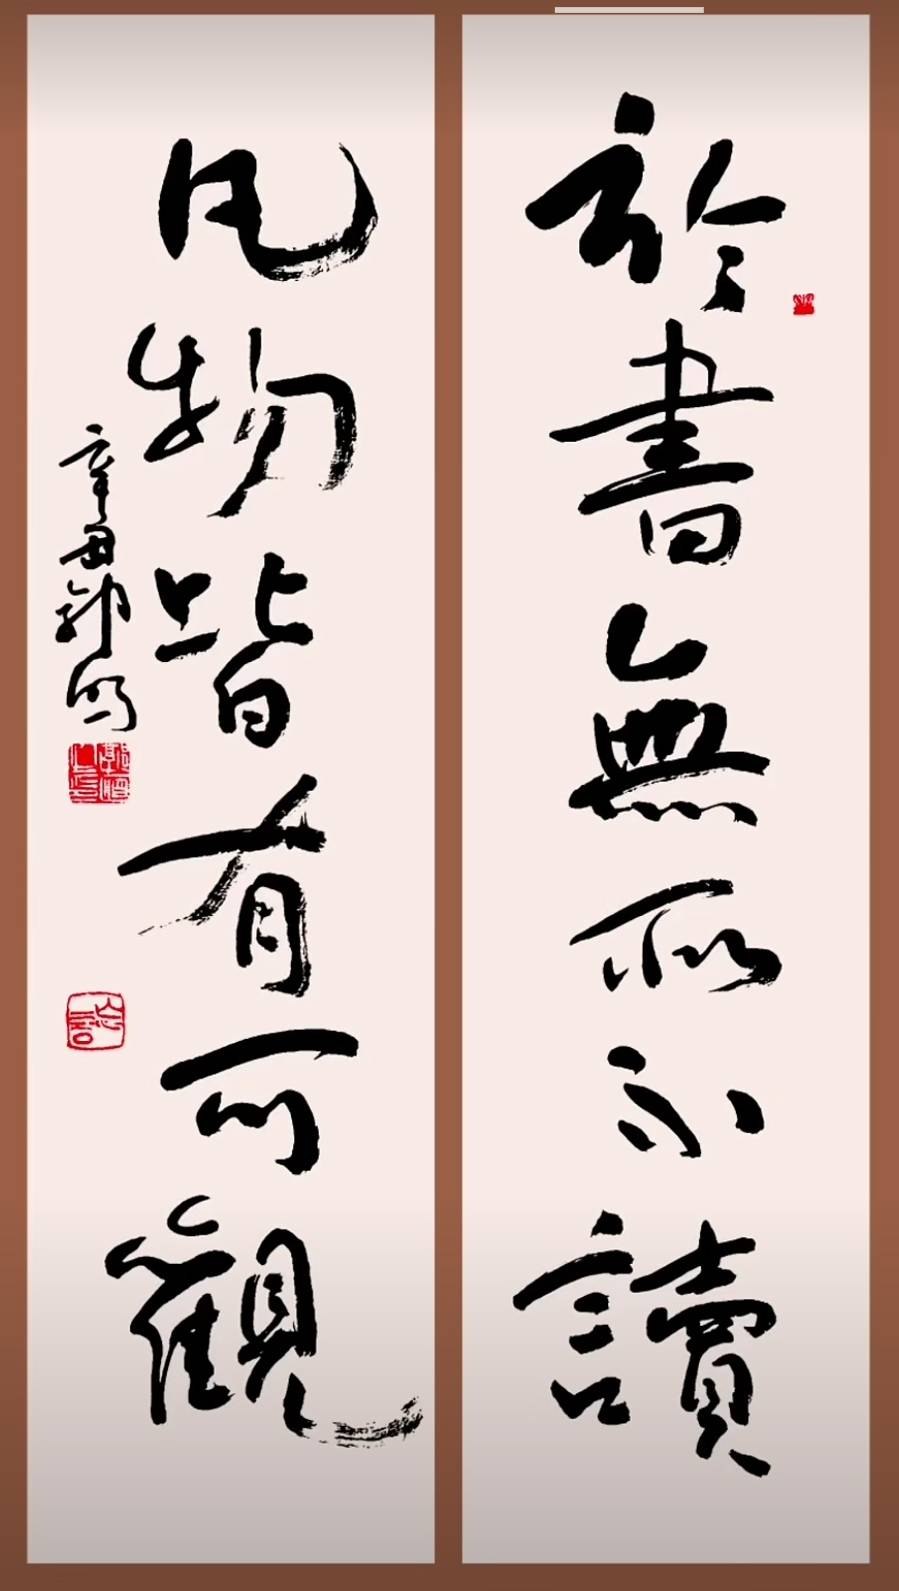 於書無所不讀
凡物皆有可觀
辛丑